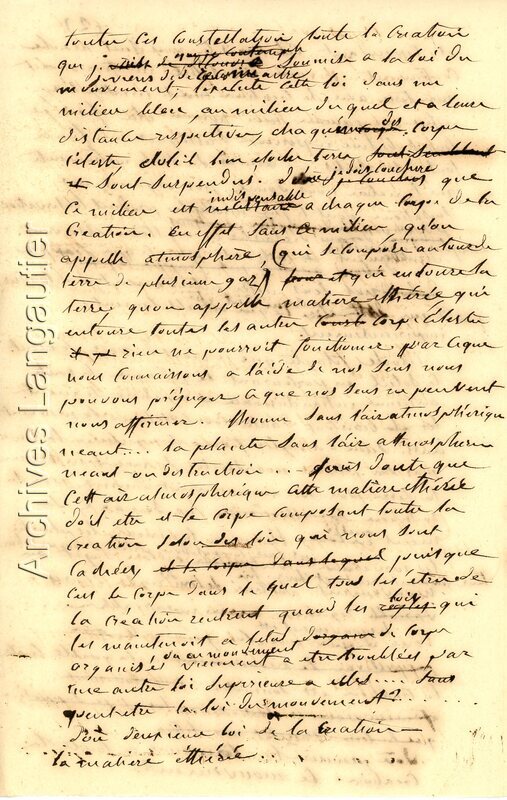 toutes ces constellations, toute la création
que j soumise a la loi du
mouvement, exécute cette loi dans un
milieu bleu, au milieu duquel et a leurs
distance respectives, chaque corps
céleste soleil lune etoile terre
sont suspendus. je dois conclure que
ce milieu est indispensable a chaque corps de la
création. En effet sans ce milieu, qu'on
appelle atmosphère, (qui se compose autour de
terre de plusieurs gaz) et qui entoure la
terre, qu'on appelle matière éthérée qui
entoure toutes les autres corps céleste
rien ne pourroit fonctionner par ce que
nous connaissons a l'aide de nos sens nous
pouvons préjuger ce que nos sens ne peuvent
nous affirmer. l'homme sans l'air atmosphérique
neant.... la plante sans l'air atmospherique
neant ou destruction... sans doute que
cet air atmospherique cette matiere éthérée
doit etre et le corps composant toute la
création selon des lois qui nous sont
cachées puisque
c'est le corps dans le quel tous les êtres de
la création rentrent quand les lois qui
les maintenoit a l'etat de corps
organisés ou au mouvement viennent a etre troublées par
une autre loi supérieure a elles.... sans
peut etre la loi du mouvement?.....
D'où deuxieme loi de la création—
la matière éthérée...
Archives Langautier